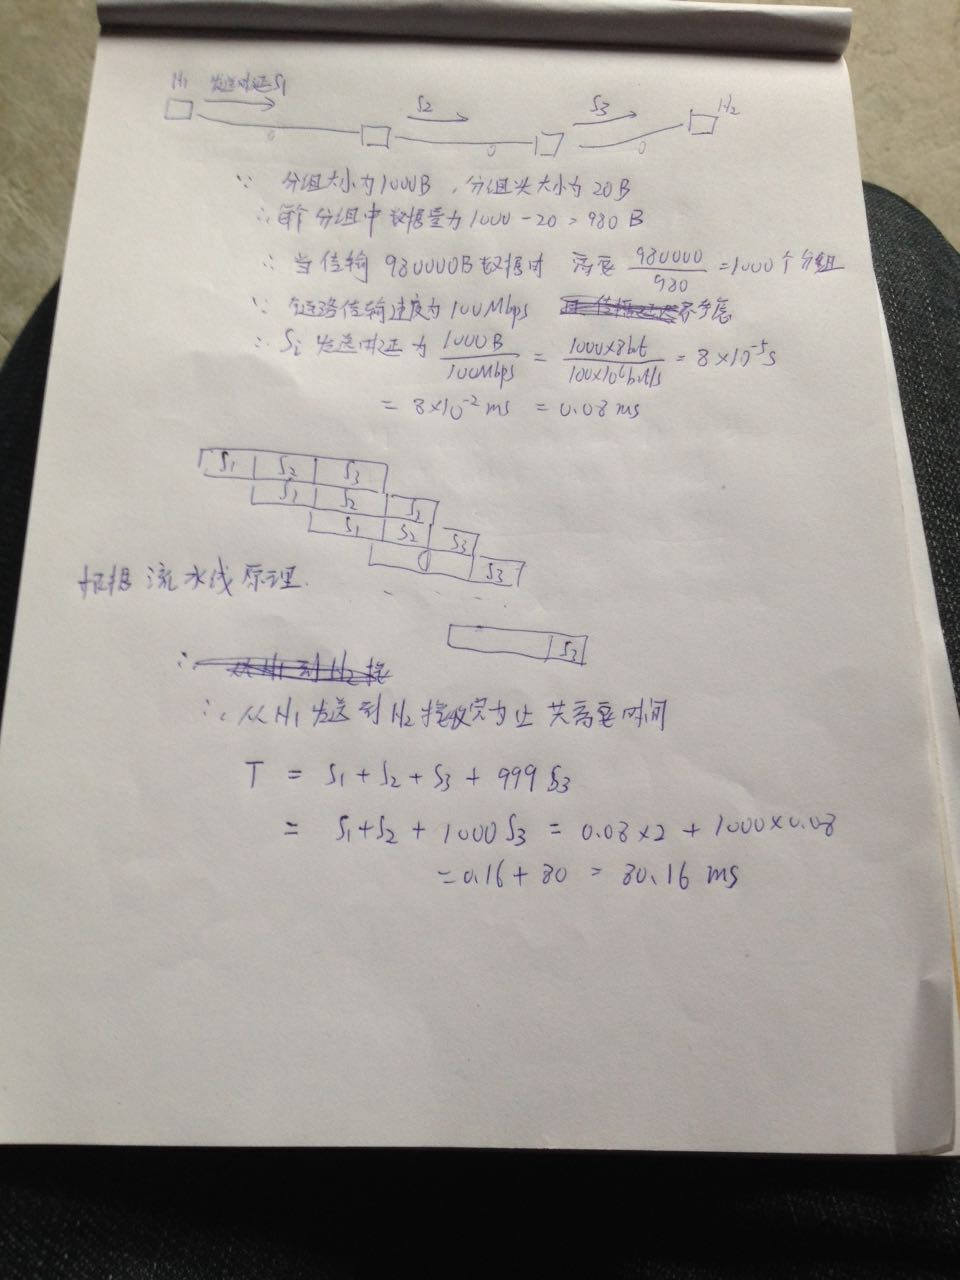 H1 发送时延S1 S2 S3 H2
0 0 0
∵ 分组大小为1000B，分组头大小为20B
∴ 每个分组中数据量为1000-20=980B
∴ 当传输980000B数据时 需要 980000/980 =1000个分组
∵ 链路传输速度为100Mbps
∴ Si 发送时延为 1000B/100Mbps = 1000×8bit/100×10^6bit/s = 8×10^-5 s
= 8×10^-2 ms = 0.08 ms
S1 S2 S3
S1 S2 S3
S1 S2 S3
S3
根据流水线原理.
S3
∴ 从H1到H2接
∴ 从H1发送到H2接收完为止 共需要时间
T = S1+S2+S3+999S3
= S1+S2+1000S3 = 0.08×2+1000×0.08
=0.16+80 = 80.16 ms